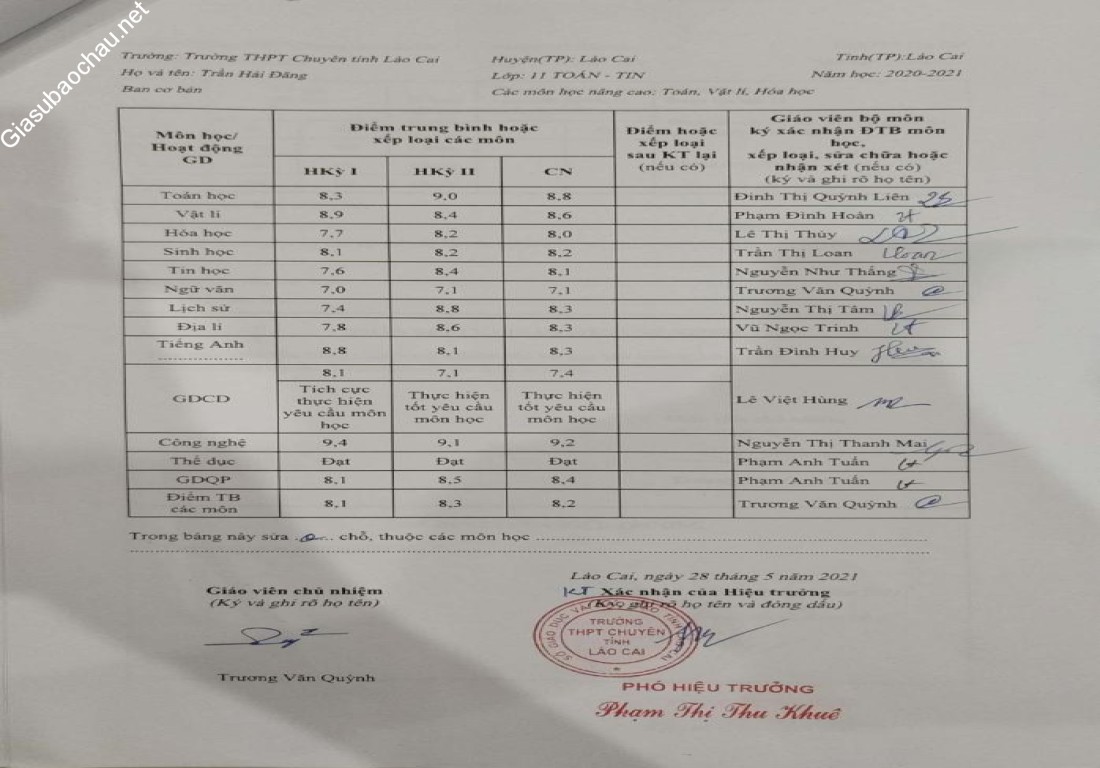 Giasubaochau.net
Trường: Trường THPT Chuyên tỉnh Lào Cai Huyện(TP): Lào Cai Tỉnh(TP):Lào Cai
Họ và tên: Trần Hải Đăng Lớp: 11 TOÁN - TIN Năm học: 2020-2021
Ban cơ bản Các môn học nâng cao: Toán, Vật lí, Hóa học
Môn học/ Hoạt động GD
Điểm trung bình hoặc xếp loại các môn
Điểm hoặc xếp loại sau KT lại (nếu có)
Giáo viên bộ môn ký xác nhận ĐTB môn học, xếp loại, sửa chữa hoặc nhận xét (nếu có) (ký và ghi rõ họ tên)
HKỳ I HKỳ II CN
Toán học 8,3 9,0 8,8 Đinh Thị Quỳnh Liên
Vật lí 8,9 8,4 8,6 Phạm Đình Hoàn
Hóa học 7,7 8,2 8,0 Lê Thị Thủy
Sinh học 8,1 8,2 8,2 Trần Thị Loan Loan
Tin học 7,6 8,4 8,1 Nguyễn Như Thắng
Ngữ văn 7,0 7,1 7,1 Trương Văn Quỳnh
Lịch sử 7,4 8,8 8,3 Nguyễn Thị Tâm
Địa lí 7,8 8,6 8,3 Vũ Ngọc Trinh
Tiếng Anh 8,8 8,1 8,3 Trần Đình Huy
GDCD 8,1 7,1 7,4 Lê Việt Hùng
Tích cực thực hiện yêu cầu môn học
Thực hiện tốt yêu cầu môn học
Thực hiện tốt yêu cầu môn học
Công nghệ 9,4 9,1 9,2 Nguyễn Thị Thanh Mai
Thể dục Đạt Đạt Đạt Phạm Anh Tuấn
GDQP 8,1 8,5 8,4 Phạm Anh Tuấn
Điểm TB các môn 8,1 8,3 8,2 Trương Văn Quỳnh
Trong bảng này sửa ..0.. chỗ, thuộc các môn học
Lào Cai, ngày 28 tháng 5 năm 2021
Giáo viên chủ nhiệm KT Xác nhận của Hiệu trưởng
(Ký và ghi rõ họ tên) (Ký, ghi rõ họ tên và đóng dấu)
TRƯỜNG
THPT CHUYÊN
TỈNH
LÀO CAI
Trương Văn Quỳnh
PHÓ HIỆU TRƯỞNG
Phạm Thị Thu Khuê